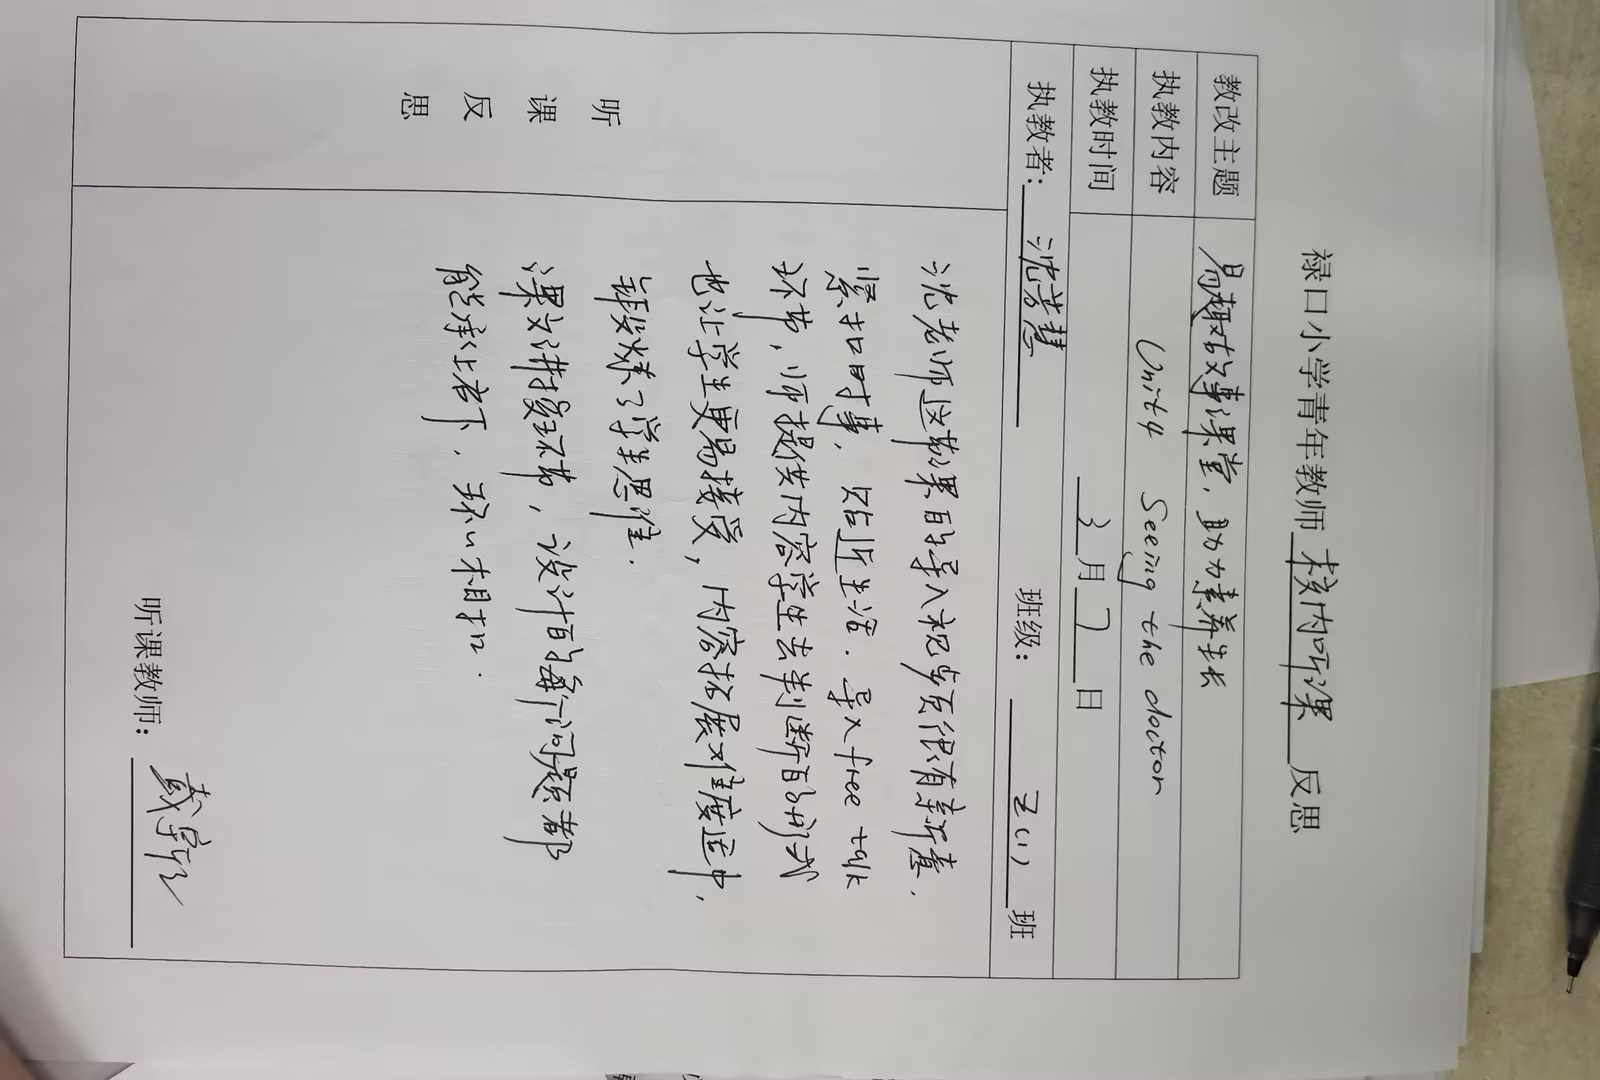 禄口小学青年教师校内听课反思
教改主题 易趣故事课堂，助力素养生长
执教内容 Unit 4 Seeing the doctor
执教时间 3月7日
执教者：沈芳慧 班级：五（1）班
听课反思
沈老师这节课的导入视频很有新意，
紧扣时事，贴近生活．导入free talk
环节，师提供内容学生去判断的形式
也让学生更易接受，内容拓展难度适中，
锻炼了学生思维．
课文讲授环节，设计的每个问题都
能承上启下，环环相扣．
听课教师：